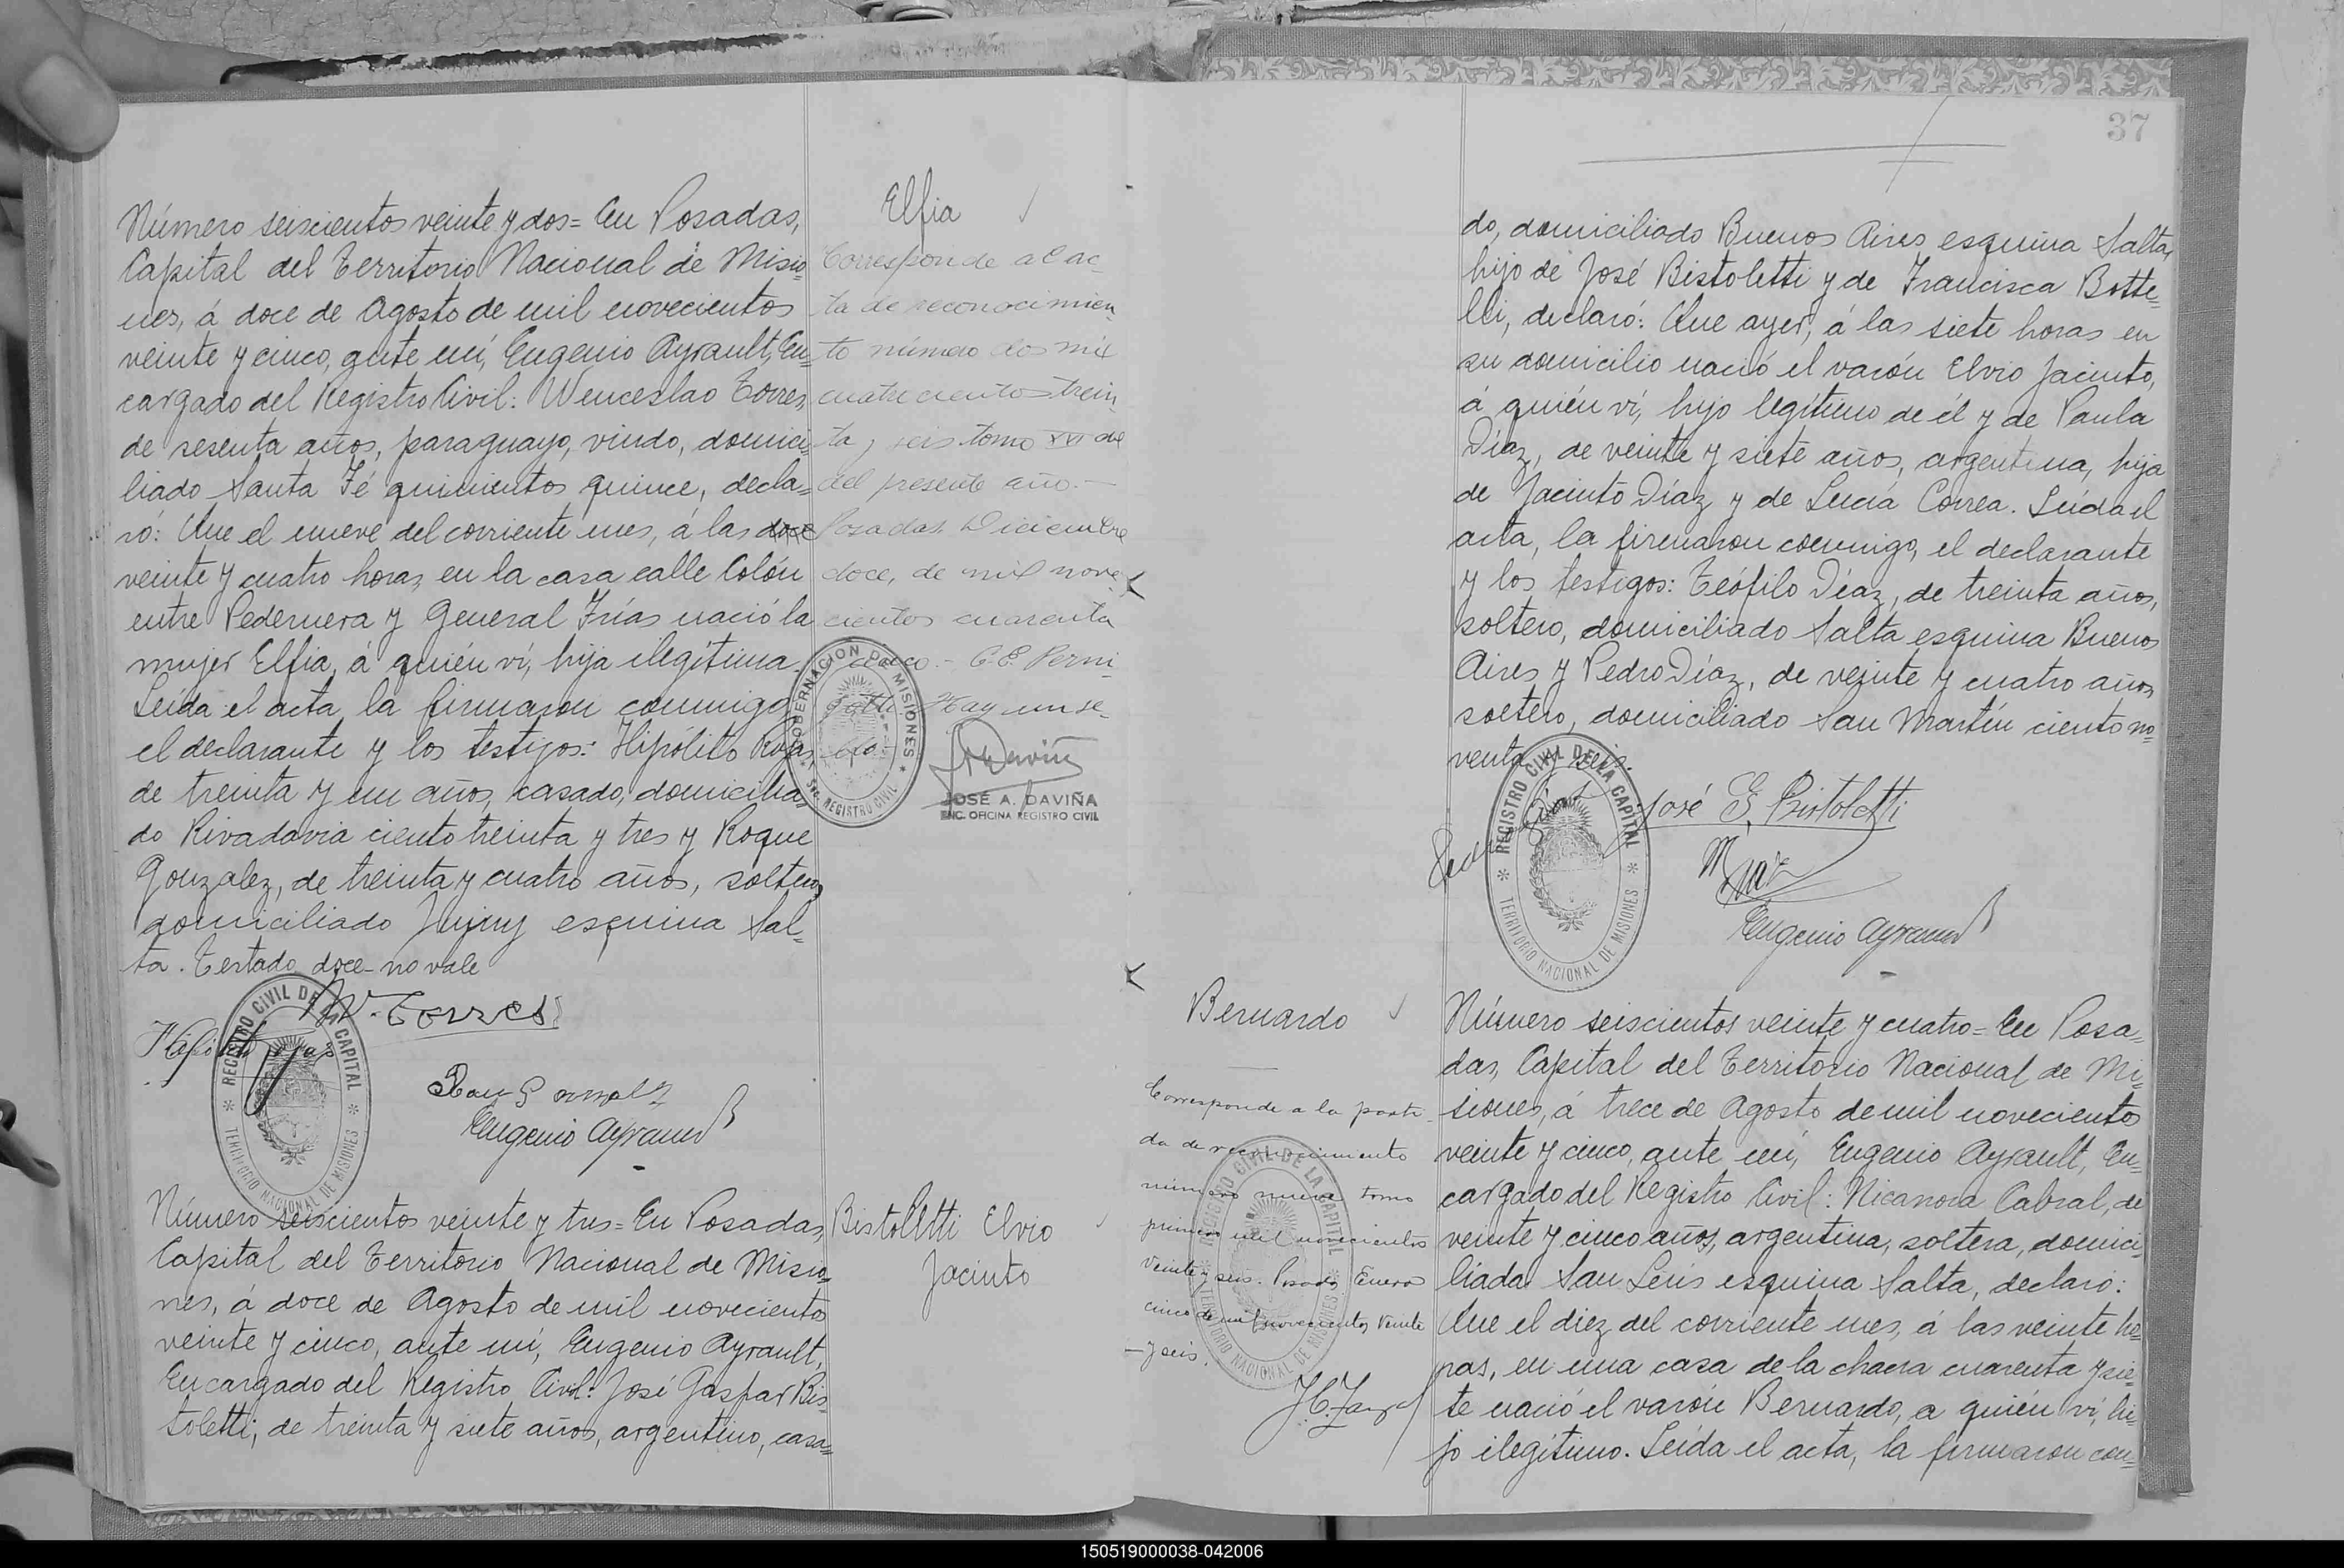 Número seiscientos veinte y dos= En Posadas,
Capital del Territorio Nacional de Misio=
nes, á doce de Agosto de mil novecientos
veinte y cinco, ante mí, Eugenio Ayrault, En=
cargado del Registro Civil: Wenceslao Torres,
de sesenta años, paraguayo, viudo, domici=
liado Santa Fé quinientos quince, decla=
ró: Que el nueve del corriente mes, á las doce
veinte y cuatro horas, en la casa calle Colón
entre Pedernera y General Frías nació la
mujer Elfia, á quién ví, hija ilegítima.
Leída el acta, la firmaron conmigo,
el declarante y los testigos: Hipólito Rojas,
de treinta y un años, casado, domicilia=
do Rivadavia ciento treinta y tres y Roque
Gonzalez, de treinta y cuatro años, soltero,
domiciliado Jujuy esquina Sal=
ta. Testado doce- no vale
W. Torres
Eugenio Ayrault
Elfia
Corresponde al ac-
ta de reconocimien-
to número dos mil
cuatrocientos trein-
ta y seis tomo XVI de
del presente año.-
Posadas, Diciembre
doce, de mil nove
cientos cuarenta
Hay un se-
llo.-
GOBERNACION DE MISIONES
REGISTRO CIVIL
JOSÉ A. DAVIÑA
ENC. OFICINA REGISTRO CIVIL
REGISTRO CIVIL DE LA CAPITAL
TERRITORIO NACIONAL DE MISIONES
Número seiscientos veinte y tres= En Posadas,
Capital del Territorio Nacional de Misio=
nes, á doce de Agosto de mil novecientos
veinte y cinco, ante mí, Eugenio Ayrault,
Encargado del Registro Civil: José Gaspar Bis=
toletti, de treinta y siete años, argentino, casa=
Bistoletti Elvio
Jacinto
37
do, domiciliado Buenos Aires esquina Salta,
hijo de José Bistoletti y de Francisca Botte=
lli, declaró: Que ayer, á las siete horas en
su domicilio nació el varón Elvio Jacinto,
á quién ví, hijo legítimo de él y de Paula
Díaz, de veinte y siete años, argentina, hija
de Jacinto Díaz y de Lucía Correa. Leída el
acta, la firmaron conmigo, el declarante
y los testigos: Teófilo Díaz, de treinta años,
soltero, domiciliado Salta esquina Buenos
Aires y Pedro Díaz, de veinte y cuatro años,
soltero, domiciliado San Martín ciento no=
venta y seis.
José G. Bistoletti
Eugenio Ayrault
REGISTRO CIVIL DE LA CAPITAL
TERRITORIO NACIONAL DE MISIONES
Bernardo
Corresponde a la parti
da de reconocimiento
número nueve tomo
primero mil novecientos
veinte y seis. Posadas Enero
cinco de mil novecientos veinte
- y seis.
REGISTRO CIVIL DE LA CAPITAL
TERRITORIO NACIONAL DE MISIONES
Número seiscientos veinte y cuatro= En Posa=
das, Capital del Territorio Nacional de Mi=
siones, á trece de Agosto de mil novecientos
veinte y cinco, ante mí, Eugenio Ayrault, En=
cargado del Registro Civil: Nicanora Cabral, de
veinte y cinco años, argentina, soltera, domici=
liada San Luis esquina Salta, declaró:
Que el diez del corriente mes, á las veinte ho=
ras, en una casa de la chacra cuarenta y sie=
te nació el varón Bernardo, a quién ví, hi=
jo ilegítimo. Leída el acta, la firmaron con=
150519000038-042006